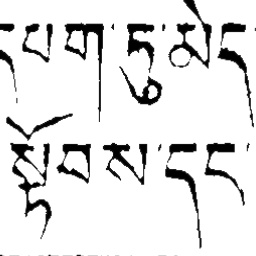 དཔག་ཏུ་མེད
སྟོབས་དང་